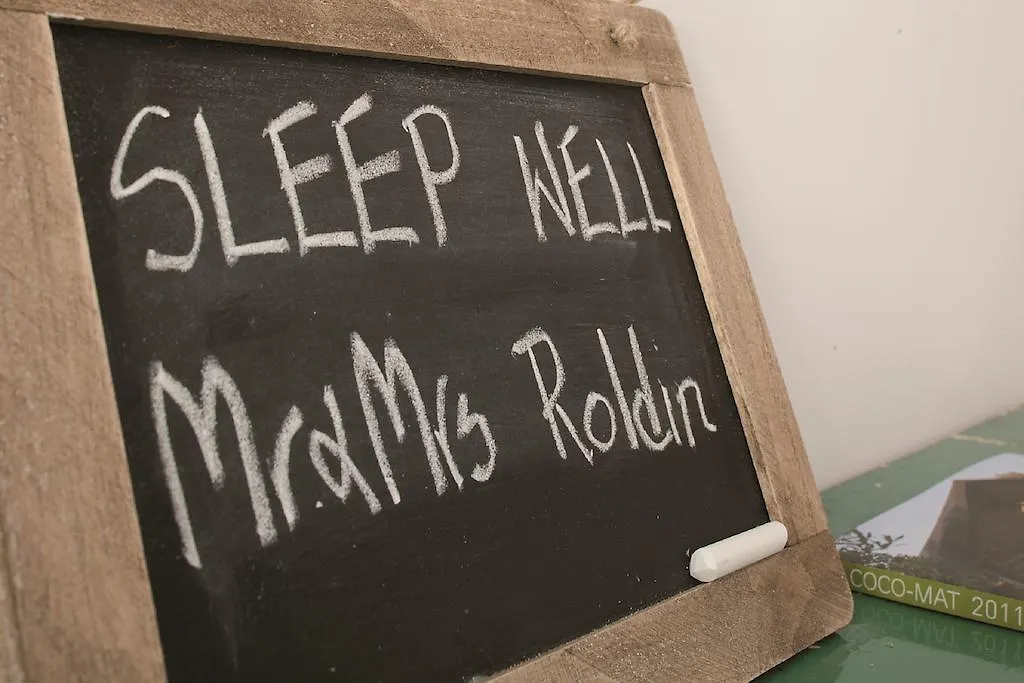 SLEEP WELL
Mr & Mrs Roldin
COCO-MAT 2011